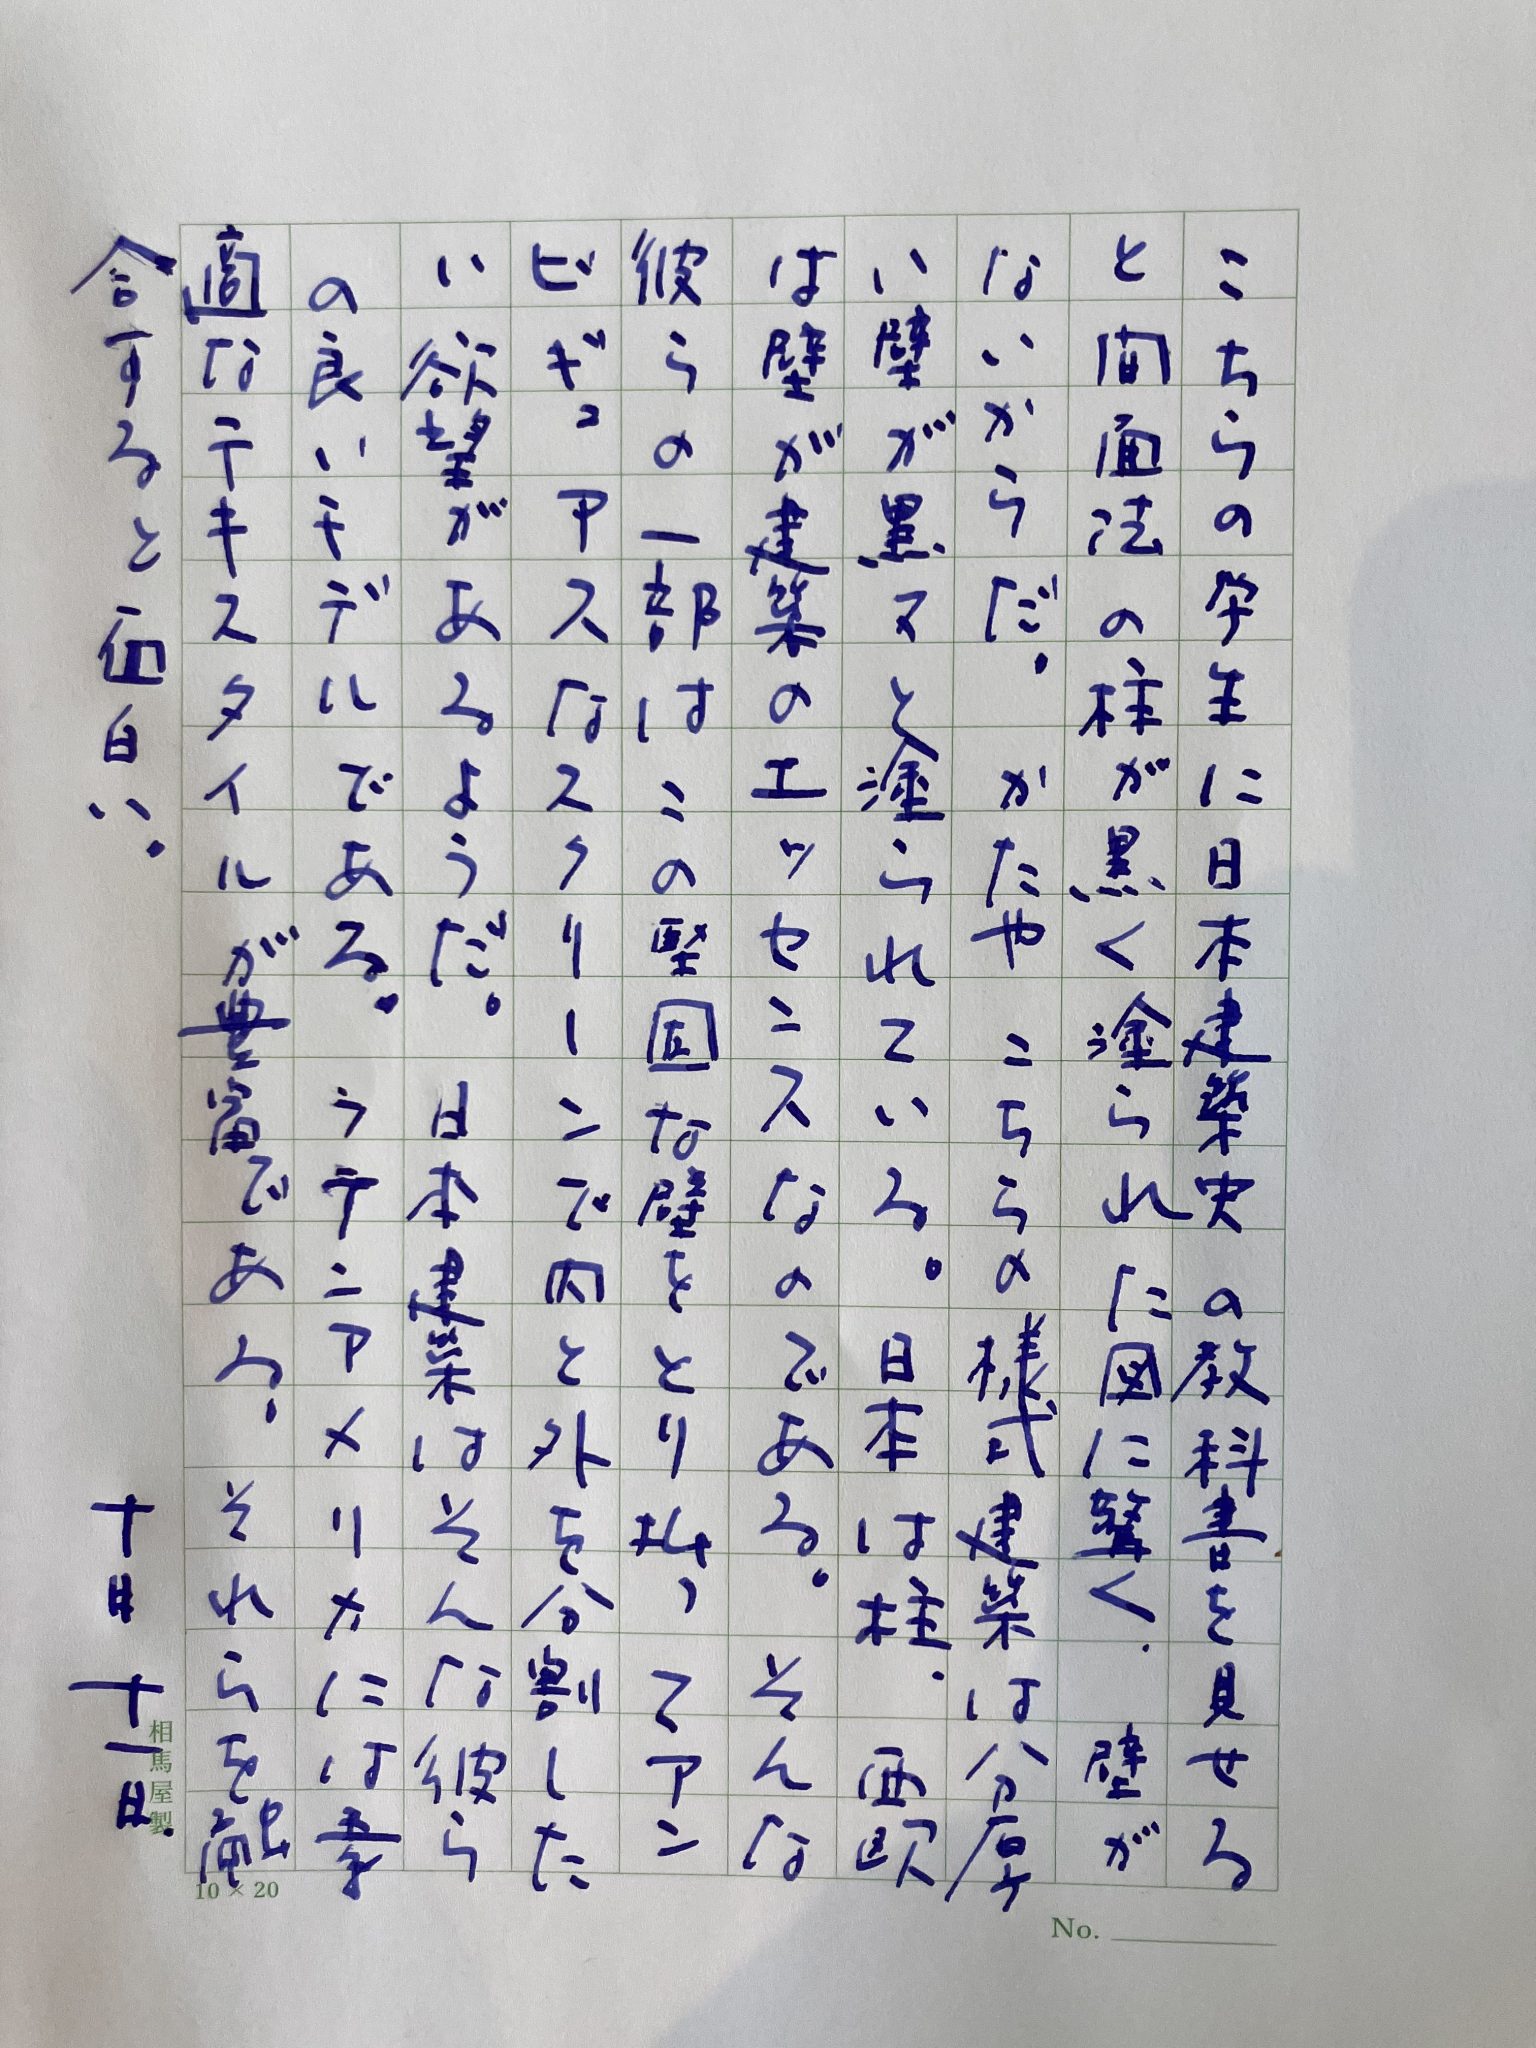 こちらの学生に日本建築史の教科書を見せる
と間面法の柱が黒く塗られた図に驚く．壁が
ないからだ。かたやこちらの様式建築は分厚
い壁が黒ヌと塗られている。日本は柱．西欧
は壁が建築のエッセンスなのである。そんな
彼らの一部はこの堅固な壁をとり払ってアン
ビギュアスなスクリーンで内と外を分割した
い欲望があるようだ。日本建築はそんな彼ら
の良いモデルである。ラテンアメリカには素
適なテキスタイルが豊富である．それらを融
合すると面白い．
十月十一日．
相馬屋製
10×20
No.